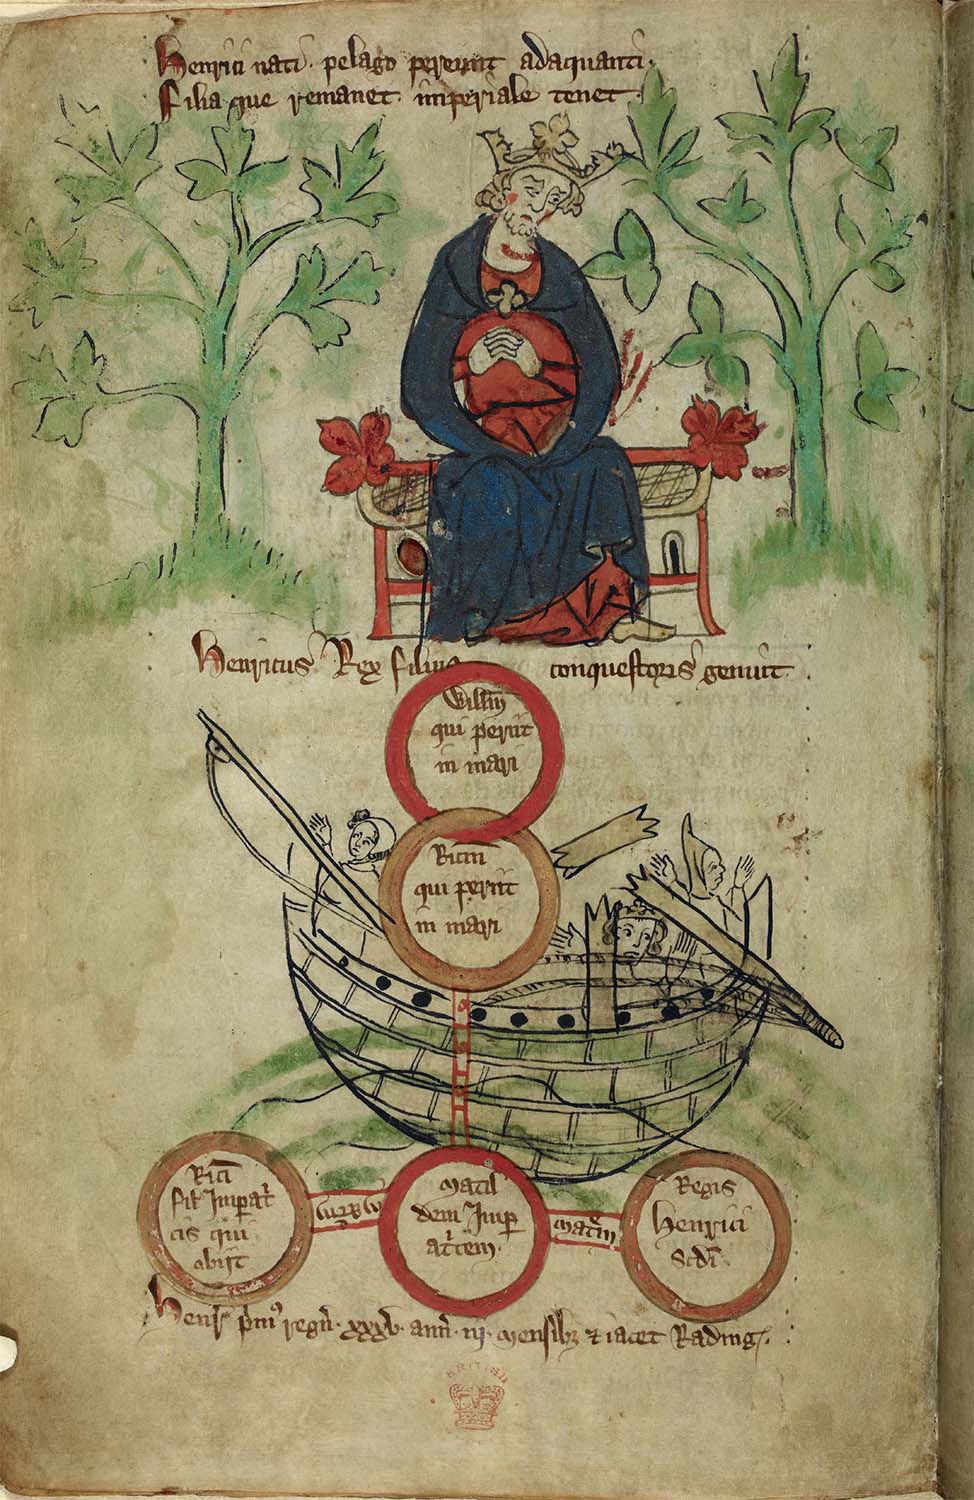 Henrici nati · pelago pereunt adaquanti ·
Filia que remanet · imperiale tenet
Henricus Rex filius conquestoris genuit
Willm
qui periit
in mari
Ricm
qui periit
in mari
Rici
fil Imperat
cis qui
obiit
uxor
Matil
dem Imp
atcem
matrem
Regis
Henrici
scdi
Henr pm regn · xxxv · ann · iij · mensib & iacet Rading
BRITISH